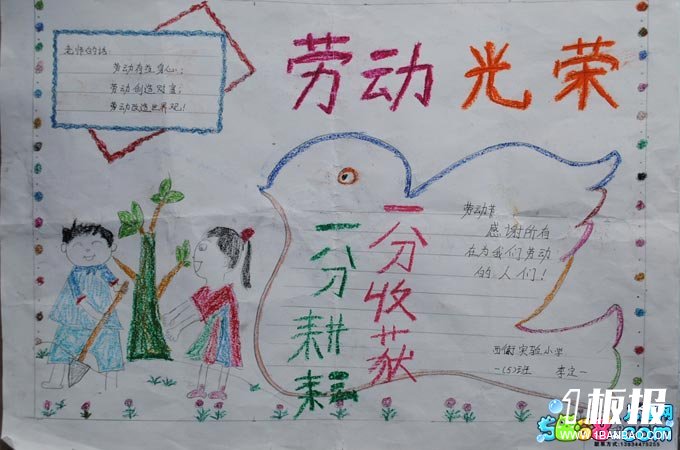 劳动光荣
老师的话:
劳动存在身心;
劳动创造财富;
劳动改造世界观!
一分耕耘
一分收获
劳动节
感谢所有
在为我们劳动
的人们!
实验小学
一(5)班 李定一
1板报
WWW.1BANBAO.COM